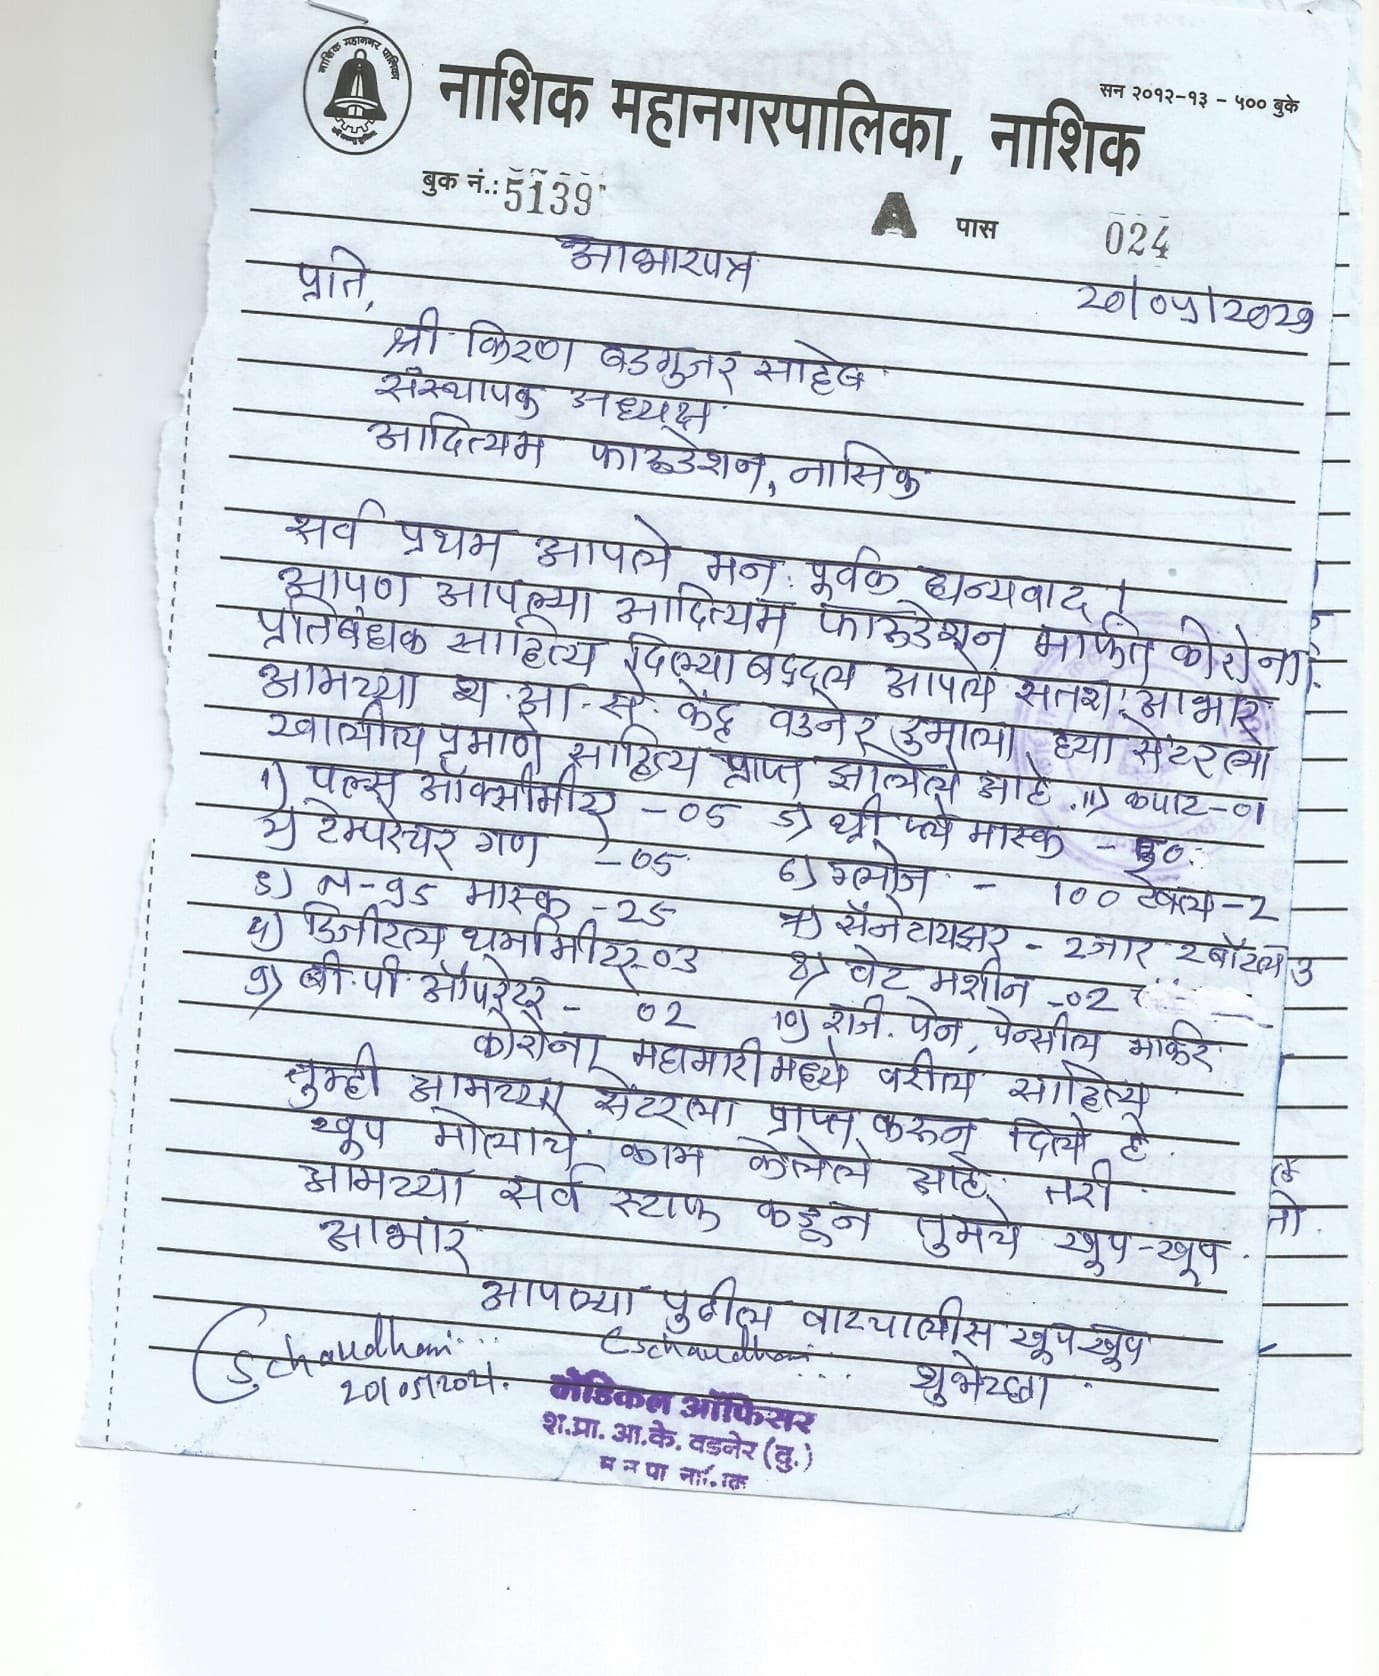 नाशिक महानगर पालिका
सन २०१२-१३ - ५०० बुके
नाशिक महानगरपालिका, नाशिक
बुक नं.: 5139
A पास 024
आभारपत्र
प्रति, 20/05/2021
श्री किरण बडगुजर साहेब
संस्थापक अध्यक्ष
आदित्यम फाऊंडेशन, नासिक
सर्व प्रथम आपले मन:पूर्वक धन्यवाद !
आपण आपल्या आदित्यम फाऊंडेशन मार्फत कोरोना
प्रतिबंधक साहित्य दिल्याबद्दल आपले शतश: आभार
आमच्या श. आ. से. केंद्र वडनेर दुमाला ह्या सेंटरला
खालील प्रमाणे साहित्य प्राप्त झालेले आहे. ११) कपाट-01
१) पल्स ऑक्सीमीटर -05 ५) थ्री प्ले मास्क -
२) टेम्परेचर गण -05 ६) ग्लोज - 100 टेबल-2
३) N-95 मास्क -25 ७) सॅनेटायझर - २जार २बॉटल
४) डिजीटल थर्मामीटर-03 ८) वेट मशीन -02
९) बी.पी. ऑपरेटर - 02 १०) रजि. पेन, पेन्सील मार्कर
कोरोना महामारीमध्ये वरील साहित्य
तुम्ही आमच्या सेंटरला प्राप्त करून दिले हे
खूप मोलाचे काम केलेले आहे. तरी
आमच्या सर्व स्टाफ कडून तुमचे खूप-खूप
आभार
आपल्या पुढील वाटचालीस खूप खूप
शुभेच्छा
20/05/2021.
मेडिकल ऑफिसर
श.प्रा. आ.के. वडनेर (दु.)
म न पा नाशिक